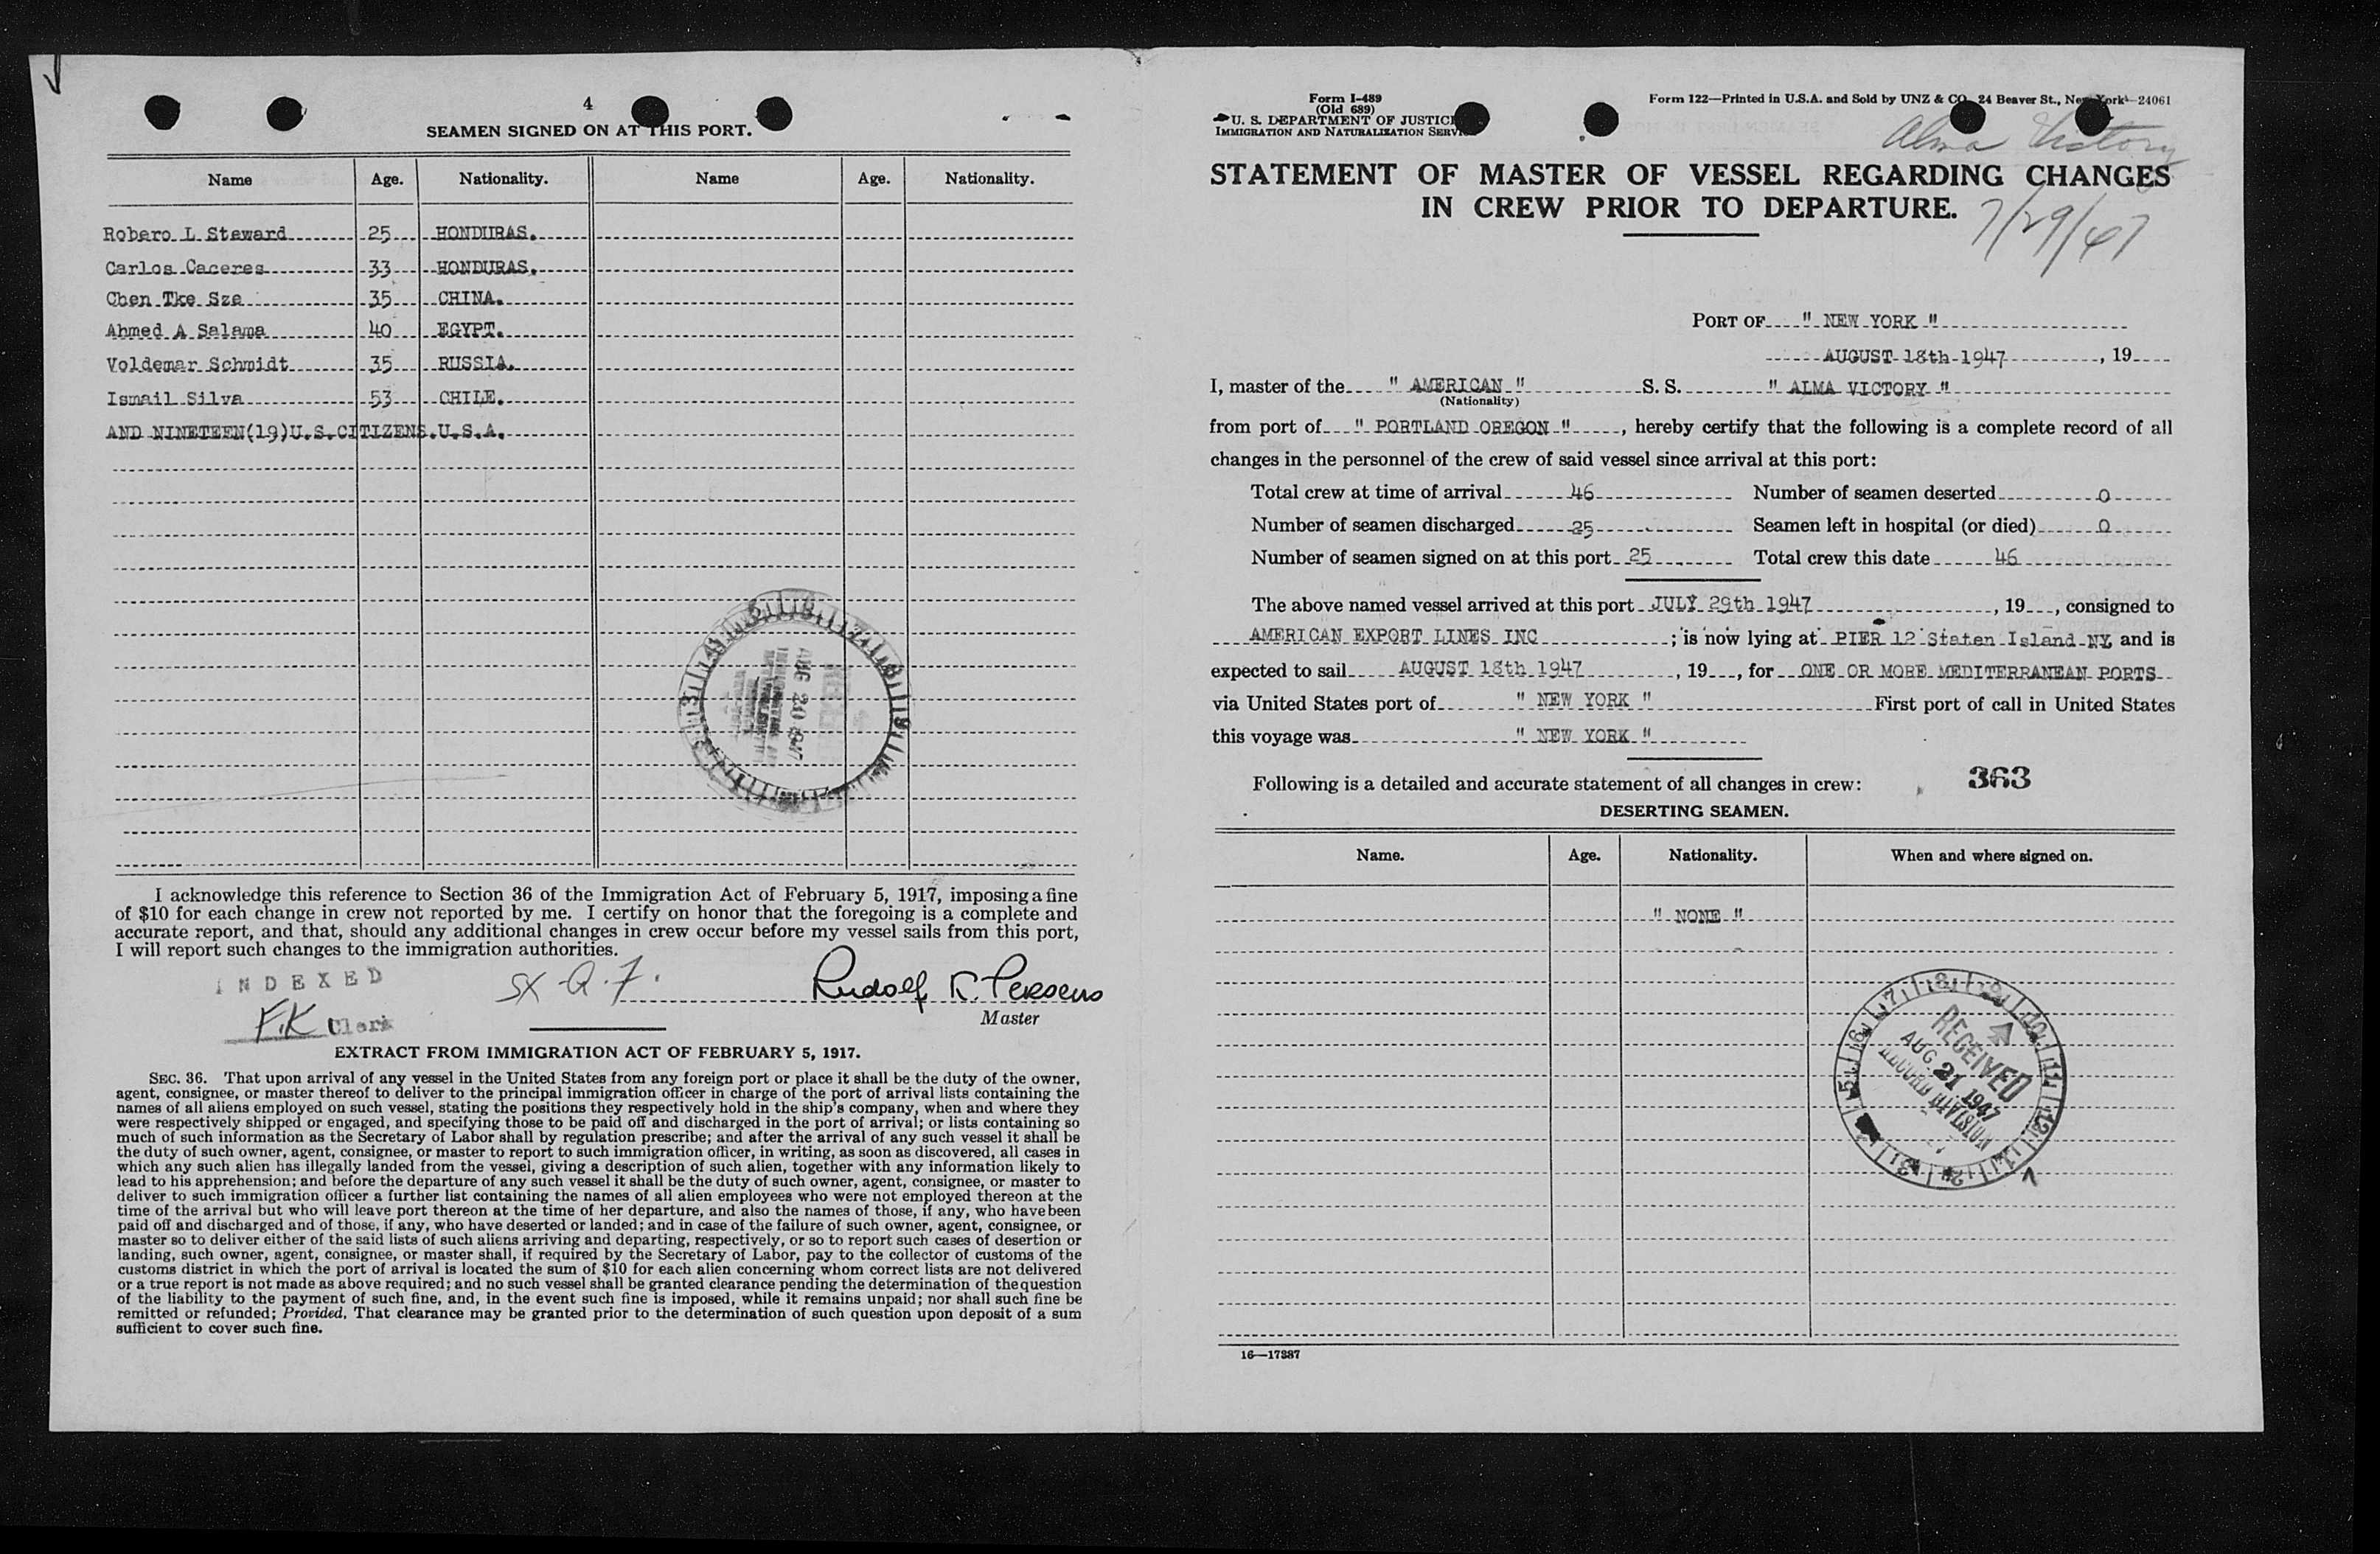 4
SEAMEN SIGNED ON AT THIS PORT.
Name Age. Nationality. Name Age. Nationality.
Robero L Steward 25 HONDURAS.
Carlos Caceres 33 HONDURAS.
Chen Tke Sze 35 CHINA.
Ahmed A Salama 40 EGYPT.
Voldemar Schmidt 35 RUSSIA.
Ismail Silva 53 CHILE.
AND NINETEEN(19)U.S.CITIZENS.U.S.A.
AUG 20 1947
I acknowledge this reference to Section 36 of the Immigration Act of February 5, 1917, imposing a fine
of $10 for each change in crew not reported by me. I certify on honor that the foregoing is a complete and
accurate report, and that, should any additional changes in crew occur before my vessel sails from this port,
I will report such changes to the immigration authorities.
INDEXED
F.K Clerk
Rudolf K.
Master
EXTRACT FROM IMMIGRATION ACT OF FEBRUARY 5, 1917.
SEC. 36. That upon arrival of any vessel in the United States from any foreign port or place it shall be the duty of the owner,
agent, consignee, or master thereof to deliver to the principal immigration officer in charge of the port of arrival lists containing the
names of all aliens employed on such vessel, stating the positions they respectively hold in the ship's company, when and where they
were respectively shipped or engaged, and specifying those to be paid off and discharged in the port of arrival; or lists containing so
much of such information as the Secretary of Labor shall by regulation prescribe; and after the arrival of any such vessel it shall be
the duty of such owner, agent, consignee, or master to report to such immigration officer, in writing, as soon as discovered, all cases in
which any such alien has illegally landed from the vessel, giving a description of such alien, together with any information likely to
lead to his apprehension; and before the departure of any such vessel it shall be the duty of such owner, agent, consignee, or master to
deliver to such immigration officer a further list containing the names of all alien employees who were not employed thereon at the
time of the arrival but who will leave port thereon at the time of her departure, and also the names of those, if any, who have been
paid off and discharged and of those, if any, who have deserted or landed; and in case of the failure of such owner, agent, consignee, or
master so to deliver either of the said lists of such aliens arriving and departing, respectively, or so to report such cases of desertion or
landing, such owner, agent, consignee, or master shall, if required by the Secretary of Labor, pay to the collector of customs of the
customs district in which the port of arrival is located the sum of $10 for each alien concerning whom correct lists are not delivered
or a true report is not made as above required; and no such vessel shall be granted clearance pending the determination of the question
of the liability to the payment of such fine, and, in the event such fine is imposed, while it remains unpaid; nor shall such fine be
remitted or refunded; Provided, That clearance may be granted prior to the determination of such question upon deposit of a sum
sufficient to cover such fine.
Form I-489
(Old 689)
U. S. DEPARTMENT OF JUSTICE
IMMIGRATION AND NATURALIZATION SERVICE
Form 122—Printed in U.S.A. and Sold by UNZ & CO. 24 Beaver St., New York 24061
Alma Victory
STATEMENT OF MASTER OF VESSEL REGARDING CHANGES
IN CREW PRIOR TO DEPARTURE.
7/29/47
PORT OF " NEW YORK "
AUGUST 18th 1947, 19
I, master of the " AMERICAN " S. S. " ALMA VICTORY "
(Nationality)
from port of " PORTLAND OREGON ", hereby certify that the following is a complete record of all
changes in the personnel of the crew of said vessel since arrival at this port:
Total crew at time of arrival 46 Number of seamen deserted 0
Number of seamen discharged 25 Seamen left in hospital (or died) 0
Number of seamen signed on at this port 25 Total crew this date 46
The above named vessel arrived at this port JULY 29th 1947, 19, consigned to
AMERICAN EXPORT LINES INC; is now lying at PIER 12 Staten Island NY, and is
expected to sail AUGUST 18th 1947, 19, for ONE OR MORE MEDITERRANEAN PORTS
via United States port of " NEW YORK " First port of call in United States
this voyage was " NEW YORK "
Following is a detailed and accurate statement of all changes in crew: 363
DESERTING SEAMEN.
Name. Age. Nationality. When and where signed on.
" NONE "
RECEIVED
AUG 21 1947
RECORD DIVISION
16—17387